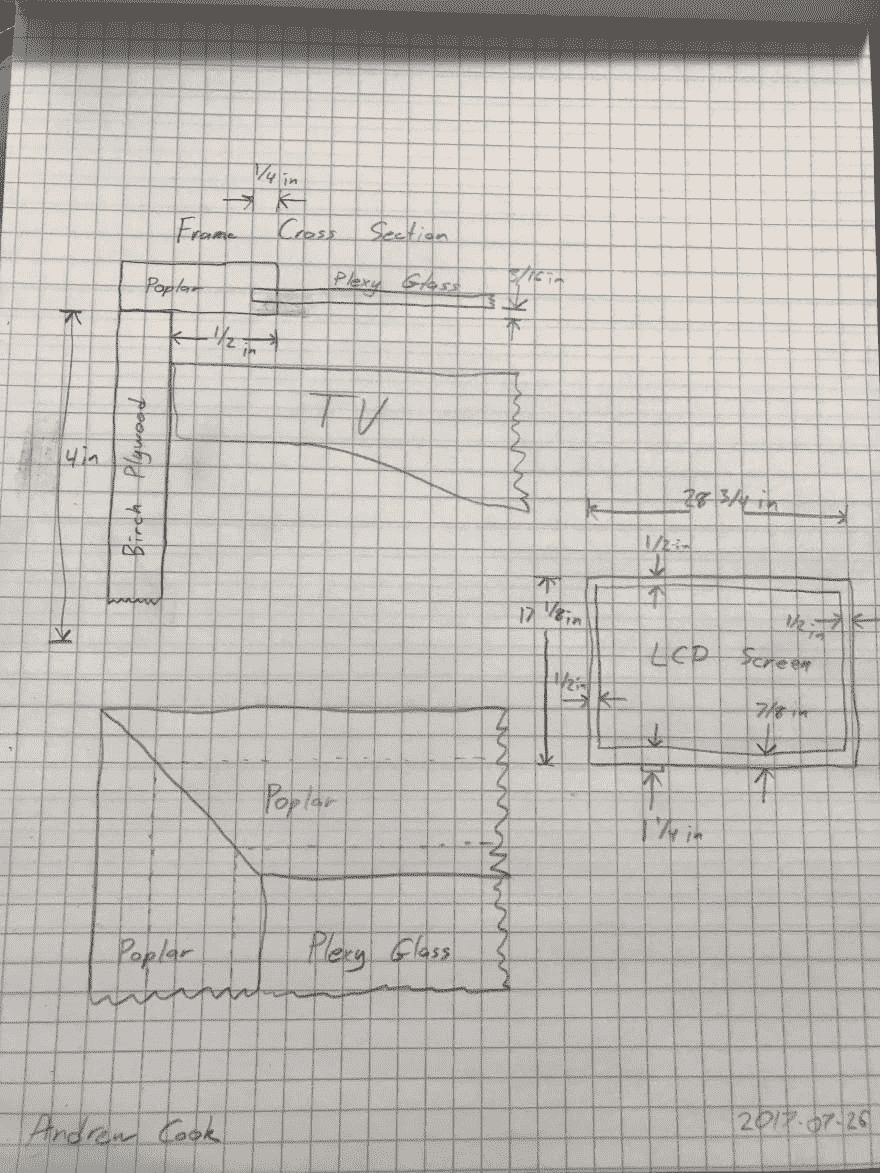 1/4 in
Frame Cross Section
3/16 in
Poplar
Plexy Glass
1/2 in
TV
4 in
Birch Plywood
28 3/4 in
1/2 in
17 1/8 in
1/2 in
LCD Screen
1/2 in
7/8 in
1 1/4 in
Poplar
Poplar
Plexy Glass
Andrew Cook
2017-07-26